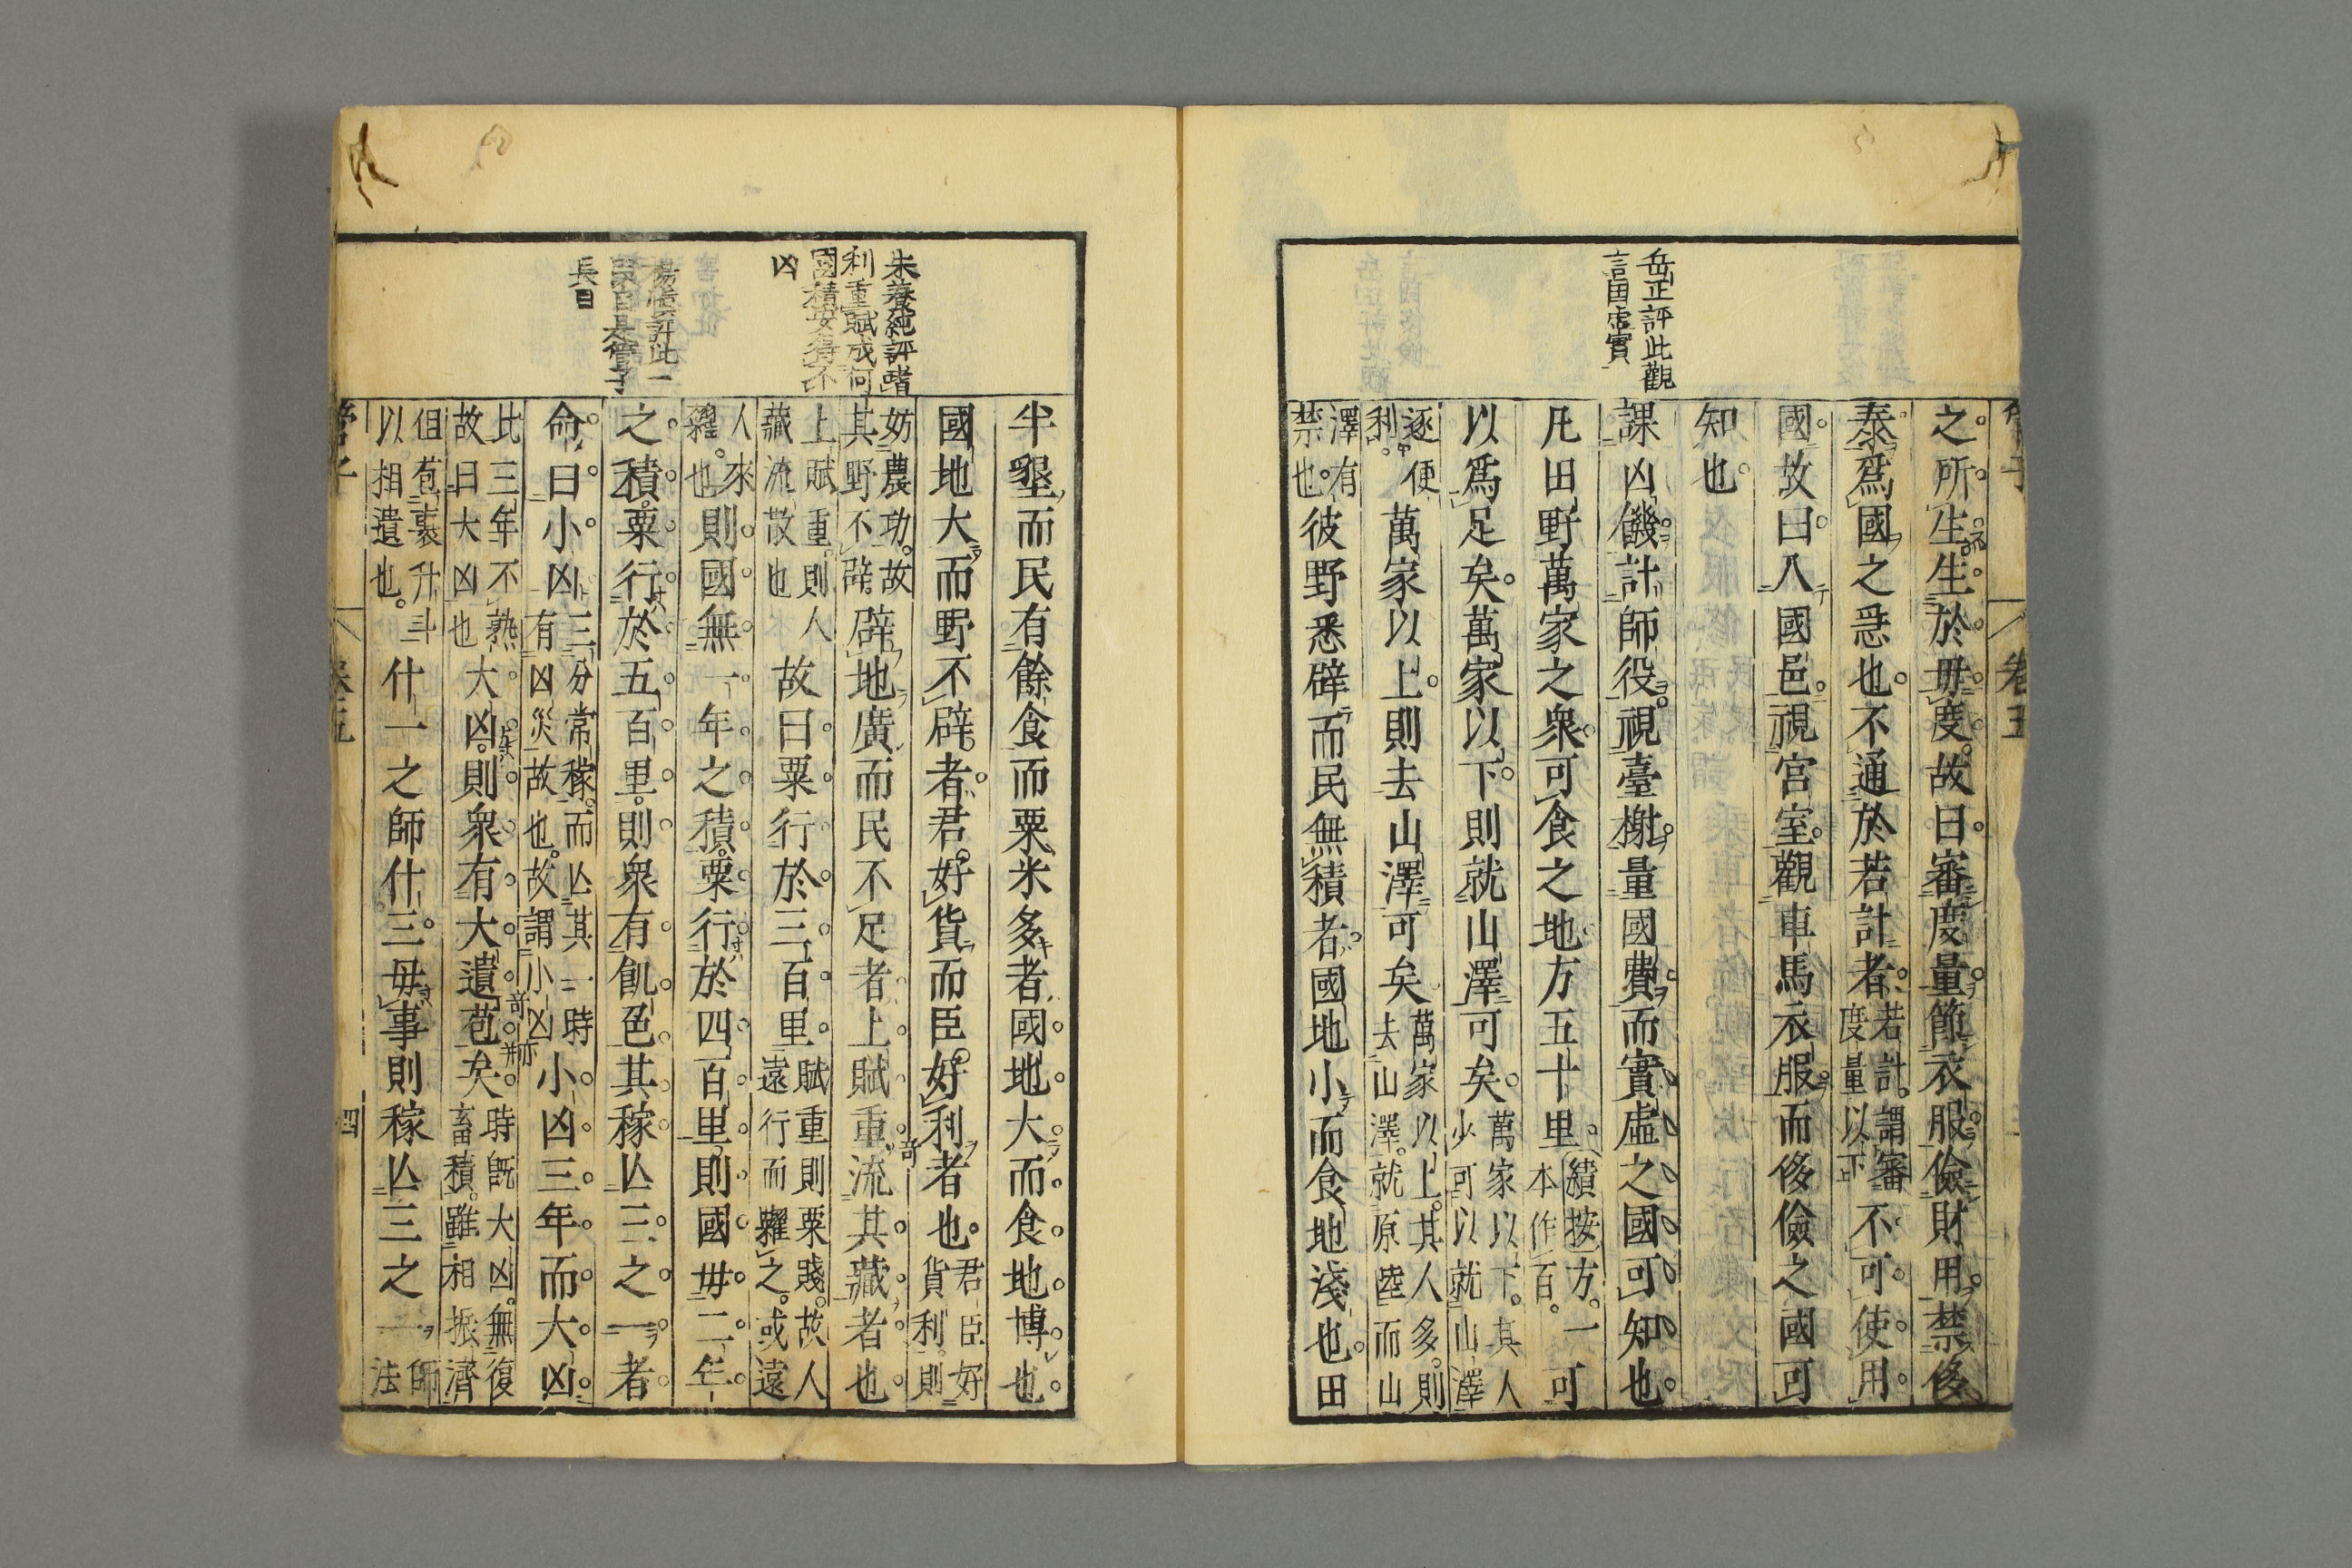 岳正評此觀
言田虛實
之所生生於毋度故曰審度量節衣服儉財用禁侈
泰爲國之急也不通於若計者若計謂審度量以下不可使用
國故曰入國邑視宮室觀車馬衣服而侈儉之國可
知也
課凶饑計師役視臺榭量國費而實虛之國可知也
凡田野萬家之衆可食之地方五十里續按方一本作百可
以爲足矣萬家以下則就山澤可矣萬家以下其人少可以就山澤
逐便利萬家以上則去山澤可矣萬家以上其人多則去山澤就原陸而山
澤有禁也彼野悉辟而民無積者國地小而食地淺也田
管子 卷五
朱養純評諸
利重賦成何
國積安得不
凶
楊慎評此一
長目
半墾而民有餘食而粟米多者國地大而食地博也
國地大而野不辟者君好貨而臣好利者也君臣好貨利則
妨農功故其野不辟辟地廣而民不足者上賦重流其藏者也
上賦重則人藏流散也故曰粟行於三百里賦重則粟賤故人遠行而糶之或遠
人來糴也則國無一年之積粟行於四百里則國毋二年
之積粟行於五百里則衆有飢色其稼亡三之一者
命曰小凶三分常稼而亡其一時有凶災故也故謂小凶小凶三年而大凶
比三年不熟故曰大凶也大凶則衆有大遺苞矣時旣大凶無復畜積雖相振濟
但苞裹升斗以相遺也什一之師什三毋事則稼亡三之一師法
管子 卷五 四